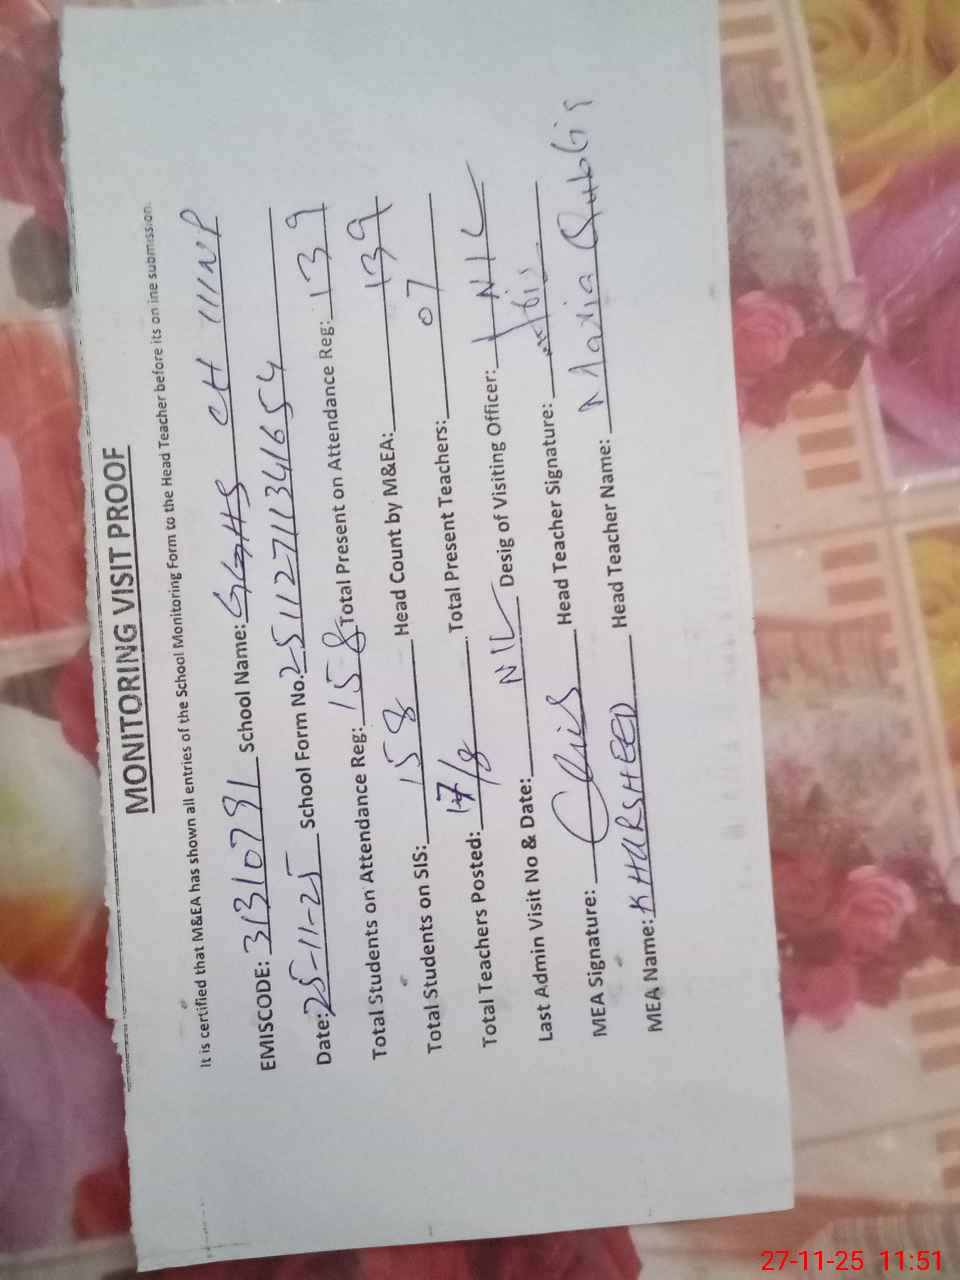 MONITORING VISIT PROOF
It is certified that M&EA has shown all entries of the School Monitoring Form to the Head Teacher before its on ine submission.
EMISCODE: 31310791 School Name: GGHS CH 111NP
Date: 25-11-25 School Form No. 25112711341654
Total Students on Attendance Reg: 158 Total Present on Attendance Reg: 139
Total Students on SIS: 158 Head Count by M&EA: 139
Total Teachers Posted: 8 Total Present Teachers: 07
Last Admin Visit No & Date: NIL Desig of Visiting Officer: NIL
MEA Signature: Head Teacher Signature:
MEA Name: KHURSHEED Head Teacher Name: Maria Qubtia
27-11-25 11:51